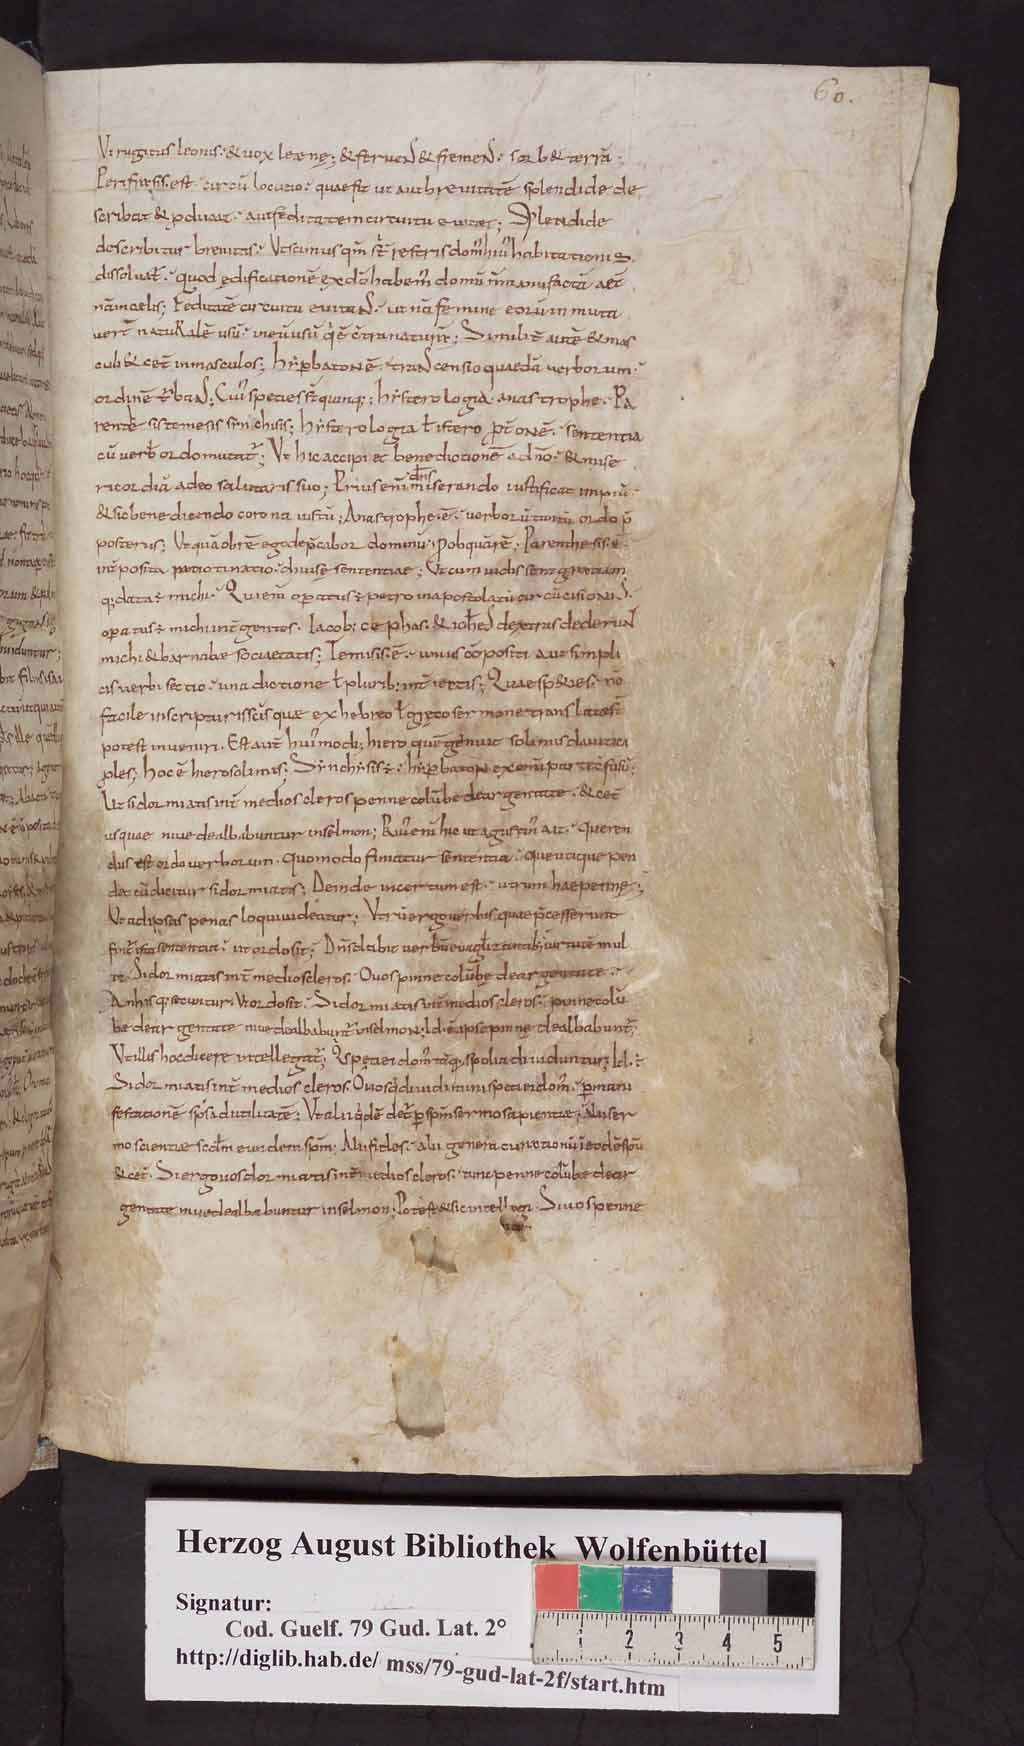 60.
Ut rugitus leonis. & vox leaenę; & ferveNs & fremeNs. sorb& terrā;
Perifrasis. est circū locutio. quae fit ut aut brevitatē splendide de
scribat & producat. aut feditatem circuitu evitet; Splendide
describitur brevitas. Ut scimus qm̄ si terrestris dom' hui' habitationis
dissolvat̄. quod ędificationē ex dō habem' domū n̄ manufactā aet̄
nā in celis; Feditatē circuitu evitaNs. ut nā femine eorum muta
vert̄ natuRalē usū. in eū usū q̄ ē c̄tra naturā; Similit̄ autē & mas
culi & cet̄ in masculos; hyp̄batoNē. traNscensio quaedā verborum.
ordinē t̄rbaNs; Cui' species st̄ quinq;; hysterologia. anastrophe. Pa
rentē sis temesis sinchisis; hysterologia ł istero p̄t̄oNē. sententia
cū verb̄ ordo mutat̄; Ut hic accipi et benedictionē a dn̄o. & mise
ricordiā a deo salutari suo; Prius enī dn̄s miserando iustificat impiū
& sic benedicendo corona iustū; Anastrophe. ē. verborū tantū ordo p̄
posterus; Ut quā obrē ego dep̄cabor dominū. p obquārē. Parenthesis. ē.
int̄posita ratiotinatio. divisę sententiae; Ut cum vidissent gratiam
q; data ÷ michi. Qui enī opatus ÷ petro in apostolatū circūcisioNis.
opatus ÷ michi int̄ gentes. Iacob; cephas. & ioh̄es dextras dederuNt
michi & barnabae societatis; Temisis. ē. unius cōpositi aut simpli
cis verbi sectio. una dictione ł plurib; int̄iectis; Quae sp&ies. nō
facile in scripturis scīs quae ex hebreo ł gręco sermone translatae st̄
potest inveniri. Est aut̄ hui'modi; hiero quē genuit solimis davitica
ples; hoc ē hierosolimis; Synchysis ÷. hyp̄baton ex omni parte cōfusū;
Ut si dormiatis int̄ medios cleros penne colūbe deargentate. & cet̄
usquae nive dealbabuntur in selmon; Rur' enī hic ut agustin' ait. queren
dus est ordo verborum. quomodo finiatur sententia. que utique pen
det cū dicitur si dormiatis; Deinde incertum est. utrum hae penne;
Ut ad ipsas penas loqui videatur; Utrū ergo verbis quae p̄cesserunt
finit̄ ista sententia. ut ordo sit; Dn̄s dabit verbū evagł'izantib; virtutē mul
ta. Si dormiatis int̄ medios cleros. O vos pinne colūbę deargentate.
An his q; secuntur. Ut ordo sit. Si dormiatis int̄ medios cleros. pinne colū
be deargentate nive dealbabunt̄ in selmon; Id. ē ipse pinnę dealbabunt̄;
Ut illis hoc dicere intellegat̄; Q; speciei dom' itaq; spolia dividuntur; Id. ē
Si dormiatis int̄ medios cleros. O vos q; dividitimini speciei dom'. p mani
festationē sp̄s ad utilitatē; Ut alii q̄dē det̄ p spm̄ sermo sapientiae; Alii ser
mo scientiae scd̄m eundem spm̄; Alii fides. alii genera curationū in eodē spū
& cet̄. Si ergo vos dormiatis int̄ medios cleros. tunc penne colūbe dear
gentate nive dealbabuntur in selmon; Potest & sic intellegi. Si vos penne
Herzog August Bibliothek Wolfenbüttel
Signatur:
Cod. Guelf. 79 Gud. Lat. 2°
http://diglib.hab.de/ mss/79-gud-lat-2f/start.htm
1 2 3 4 5